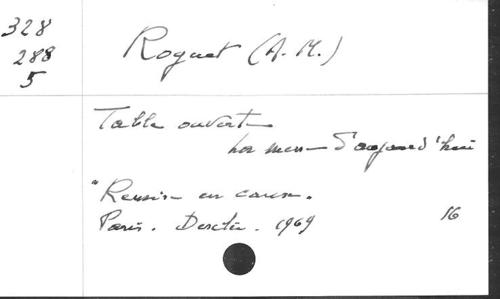 328
288
5
Roguet (A. M.)
Table ouverte
La messe d'aujourd'hui
"Remise en cause.
Paris. Desclée. 1969 16